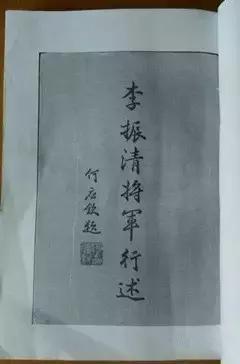 李振清将軍行述
何应欽題